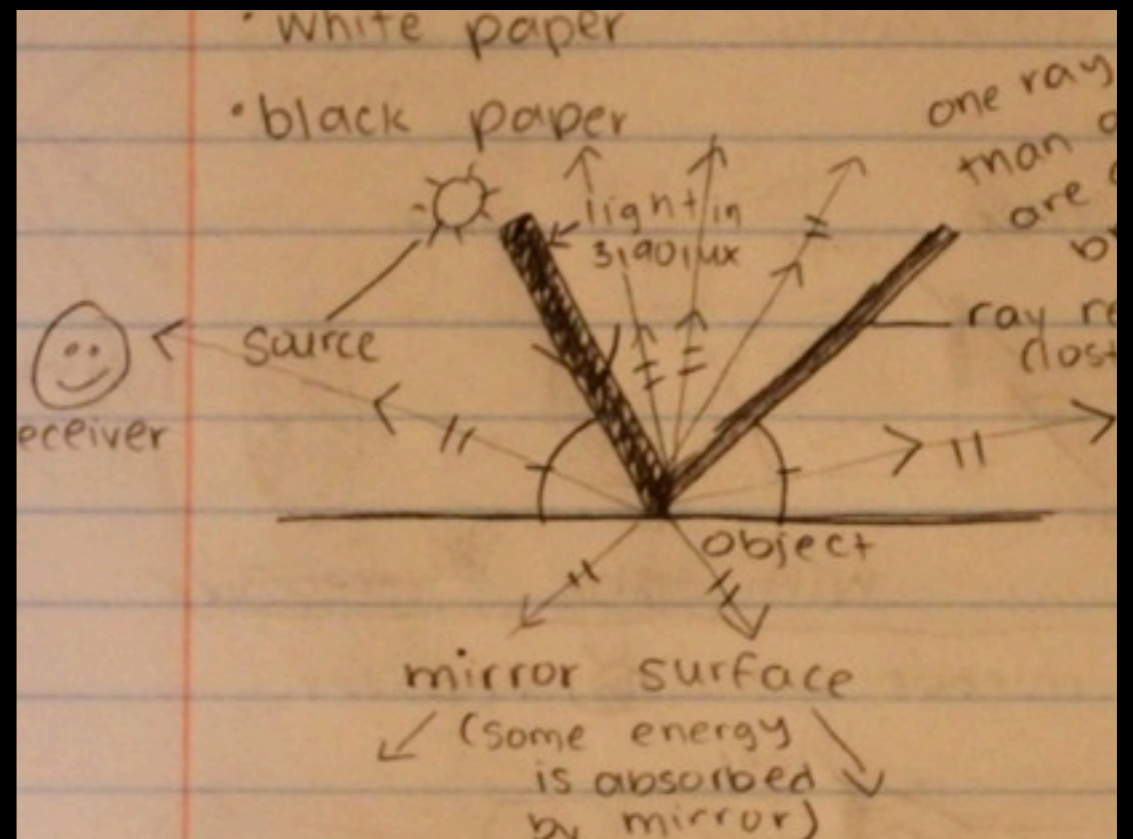 • White paper
• black paper
one ray
than
are
light in
3,190 lux
source
ray re
(lost
eceiver
object
mirror surface
(some energy
is absorbed
by mirror)